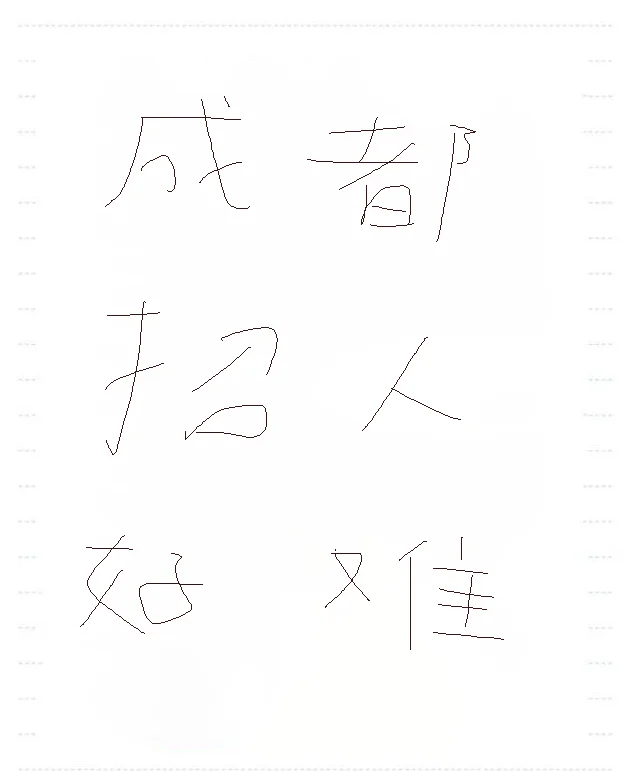 成都
招人
好难